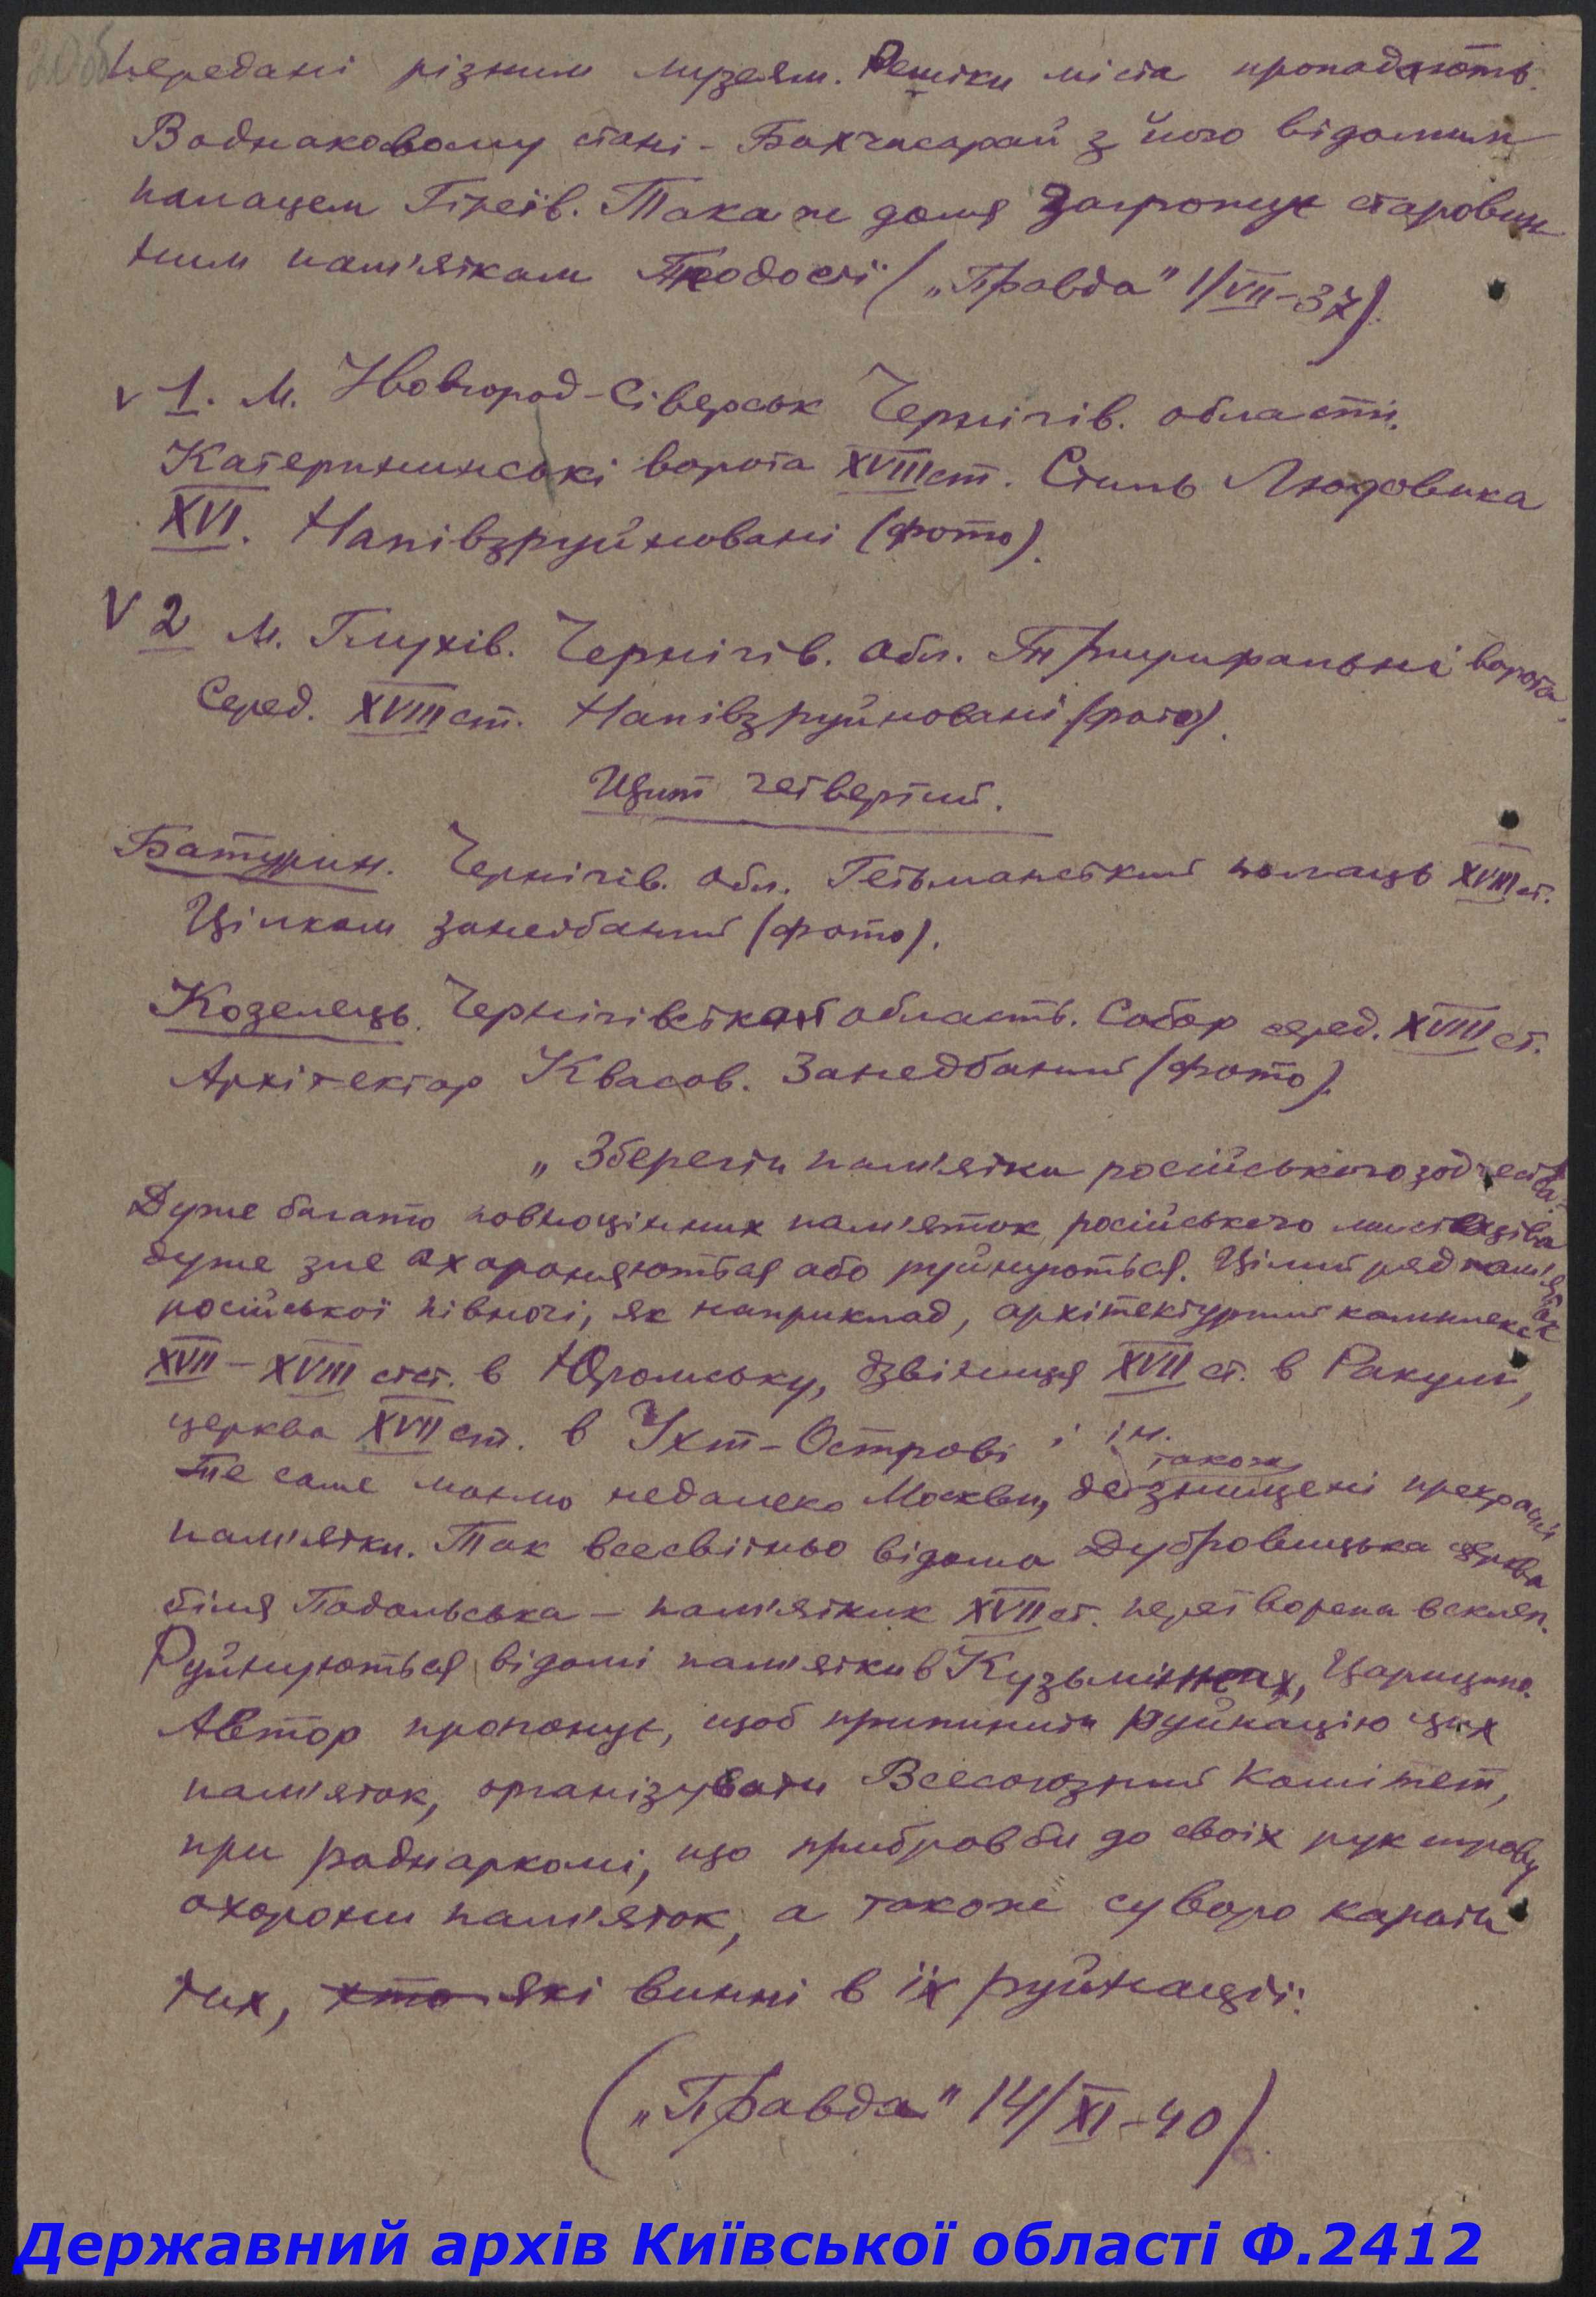 передані різним музеям. Рештки міста пропадають.
В однаковому стані - Бахчисарай з його відомим
палацем Гіреїв. Така ж доля загрожує старовин
ним пам'яткам Теодосії („Правда" 1/VII-37).
v 1. М. Новгород-Сіверськ Чернігів. області.
Катерининські ворота XVIII ст. Стиль Людовика
XVI. Напівзруйновані (фото).
V 2 М. Глухів. Чернігів. обл. Тріумфальні ворота.
Серед. XVIII ст. Напівзруйновані (фото).
Щит четвертий.
Батурин. Чернігів. обл. Гетьманський палац XVIII ст.
Цілком занедбаний (фото).
Козелець. Чернігівська область. Собор серед. XVIII ст.
Архітектор Квасов. Занедбаний (фото).
„Зберегти пам'ятки російського зодчества"
Дуже багато повноцінних пам'яток російського мистецтва
дуже зле охороняються або руйнуються. Цілий ряд пам'яток
російської півночі, як наприклад, архітектурний комплекс
XVII-XVIII стст. в Юромську, дзвіниця XVII ст. в Ракулі,
церква XVII ст. в Ухт-Острові і ін.
також
Те саме маємо недалеко Москви, де знищені прекрасні
пам'ятки. Так всесвітньо відома Дубровицька церква
біля Подольська - пам'ятник XVII ст. перетворена в склеп.
Руйнуються відомі пам'ятки в Кузьмінках, Царицино.
Автор пропонує, щоб припинити руйнацію цих
пам'яток, організувати Всесоюзний Комітет,
при раднаркомі, що прибрав би до своїх рук справу
охорони пам'яток, а також суворо карати
тих, хто які винні в їх руйнації.
(„Правда" 14/XI-40).
Державний архів Київської області Ф.2412